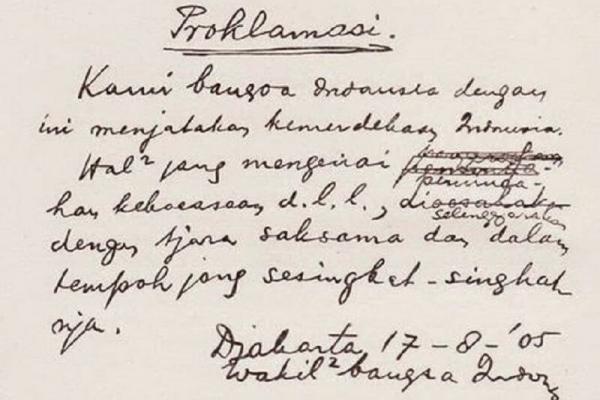 Proklamasi.
Kami bangsa Indonesia dengan
ini menjatakan kemerdekaan Indonesia.
Hal² jang mengenai peminda-
han kekoeasaan d.l.l., di selenggarakan
dengan tjara saksama dan dalam
tempoh jang sesingkat-singkat
nja.
Djakarta 17-8-'05
Wakil² bangsa